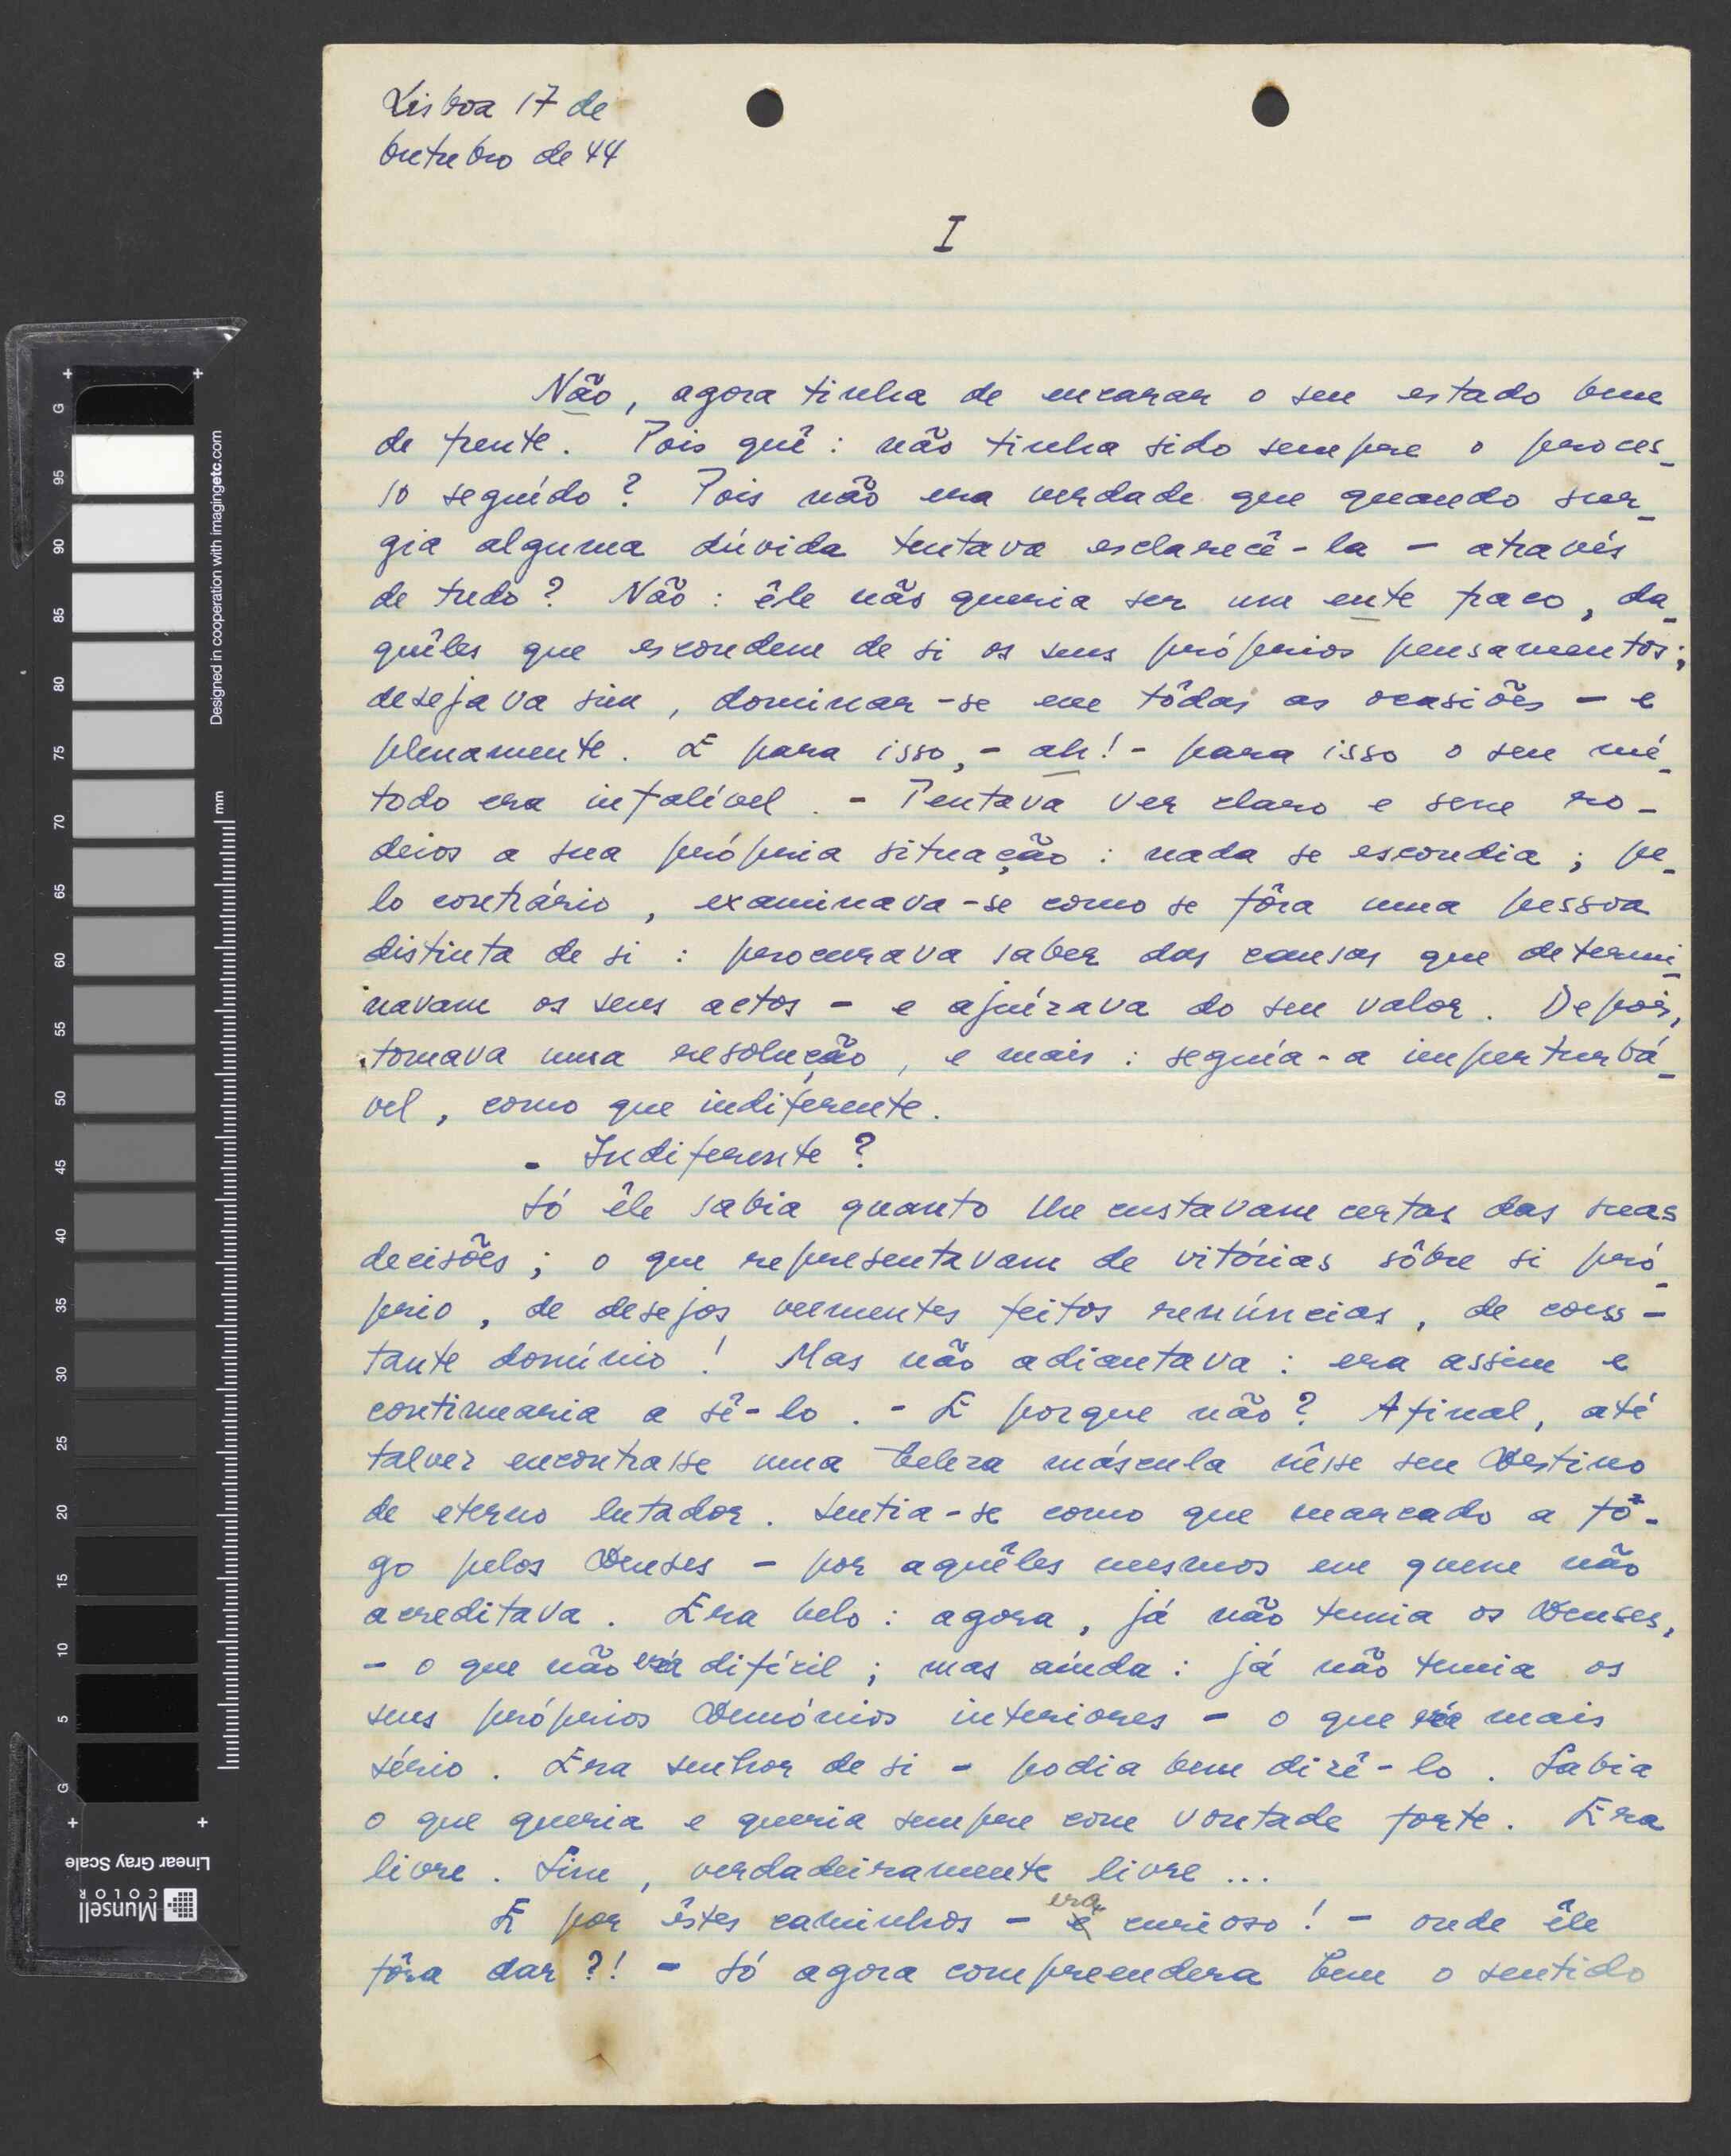 Lisboa 17 de
Outubro de 44
I
Não, agora tinha de encarar o seu estado bem
de frente. Pois quê: não tinha sido sempre o proces_
so seguido? Pois não era verdade que quando sur_
gia alguma dúvida tentava esclarecê-la - através
de tudo? Não: êle não queria ser um ente fraco, da_
quêles que escondem de si os seus próprios pensamentos;
desejava sim, dominar-se em tôdas as ocasiões - e
plenamente. E para isso, - ah! - para isso o seu mé_
todo era infalível. - Tentava ver claro e sem ro-
deios a sua própria situação: nada se escondia; pe_
lo contrário, examinava-se como se fôra uma pessoa
distinta de si: procurava saber das causas que determi_
navam os seus actos - e ajuízava do seu valor. Depois,
tomava uma resolução, e mais: seguía-a imperturbá_
vel, como que indiferente.
- Indiferente?
Só êle sabia quanto lhe custavam certas das suas
decisões; o que representavam de vitórias sôbre si pró_
prio, de desejos veementes feitos renúncias, de cons-
tante domínio! Mas não adiantava: era assim e
continuaria a sê-lo. - E porque não? Afinal, até
talvez encontrasse uma beleza máscula nêsse seu Destino
de eterno lutador. Sentia-se como que marcado a fô-
go pelos Deuses - por aquêles mesmos em quem não
acreditava. Era belo: agora, já não temia os Deuses,
- o que não era difícil; mas aínda: já não temia os
seus próprios Demónios interiores - o que era mais
sério. Era senhor de si - podia bem dizê-lo. Sabia
o que queria e queria sempre com vontade forte. Era
livre. Sim, verdadeiramente livre...
E por êstes caminhos - era curioso! - onde êle
fôra dar?! - Só agora compreendera bem o sentido
Designed in cooperation with imagingetc.com
mm
G 95 90 85 80 75 70 65 60 55 50 45 40 35 30 25 20 15 10 5 G
Linear Gray Scale
Munsell
COLOR